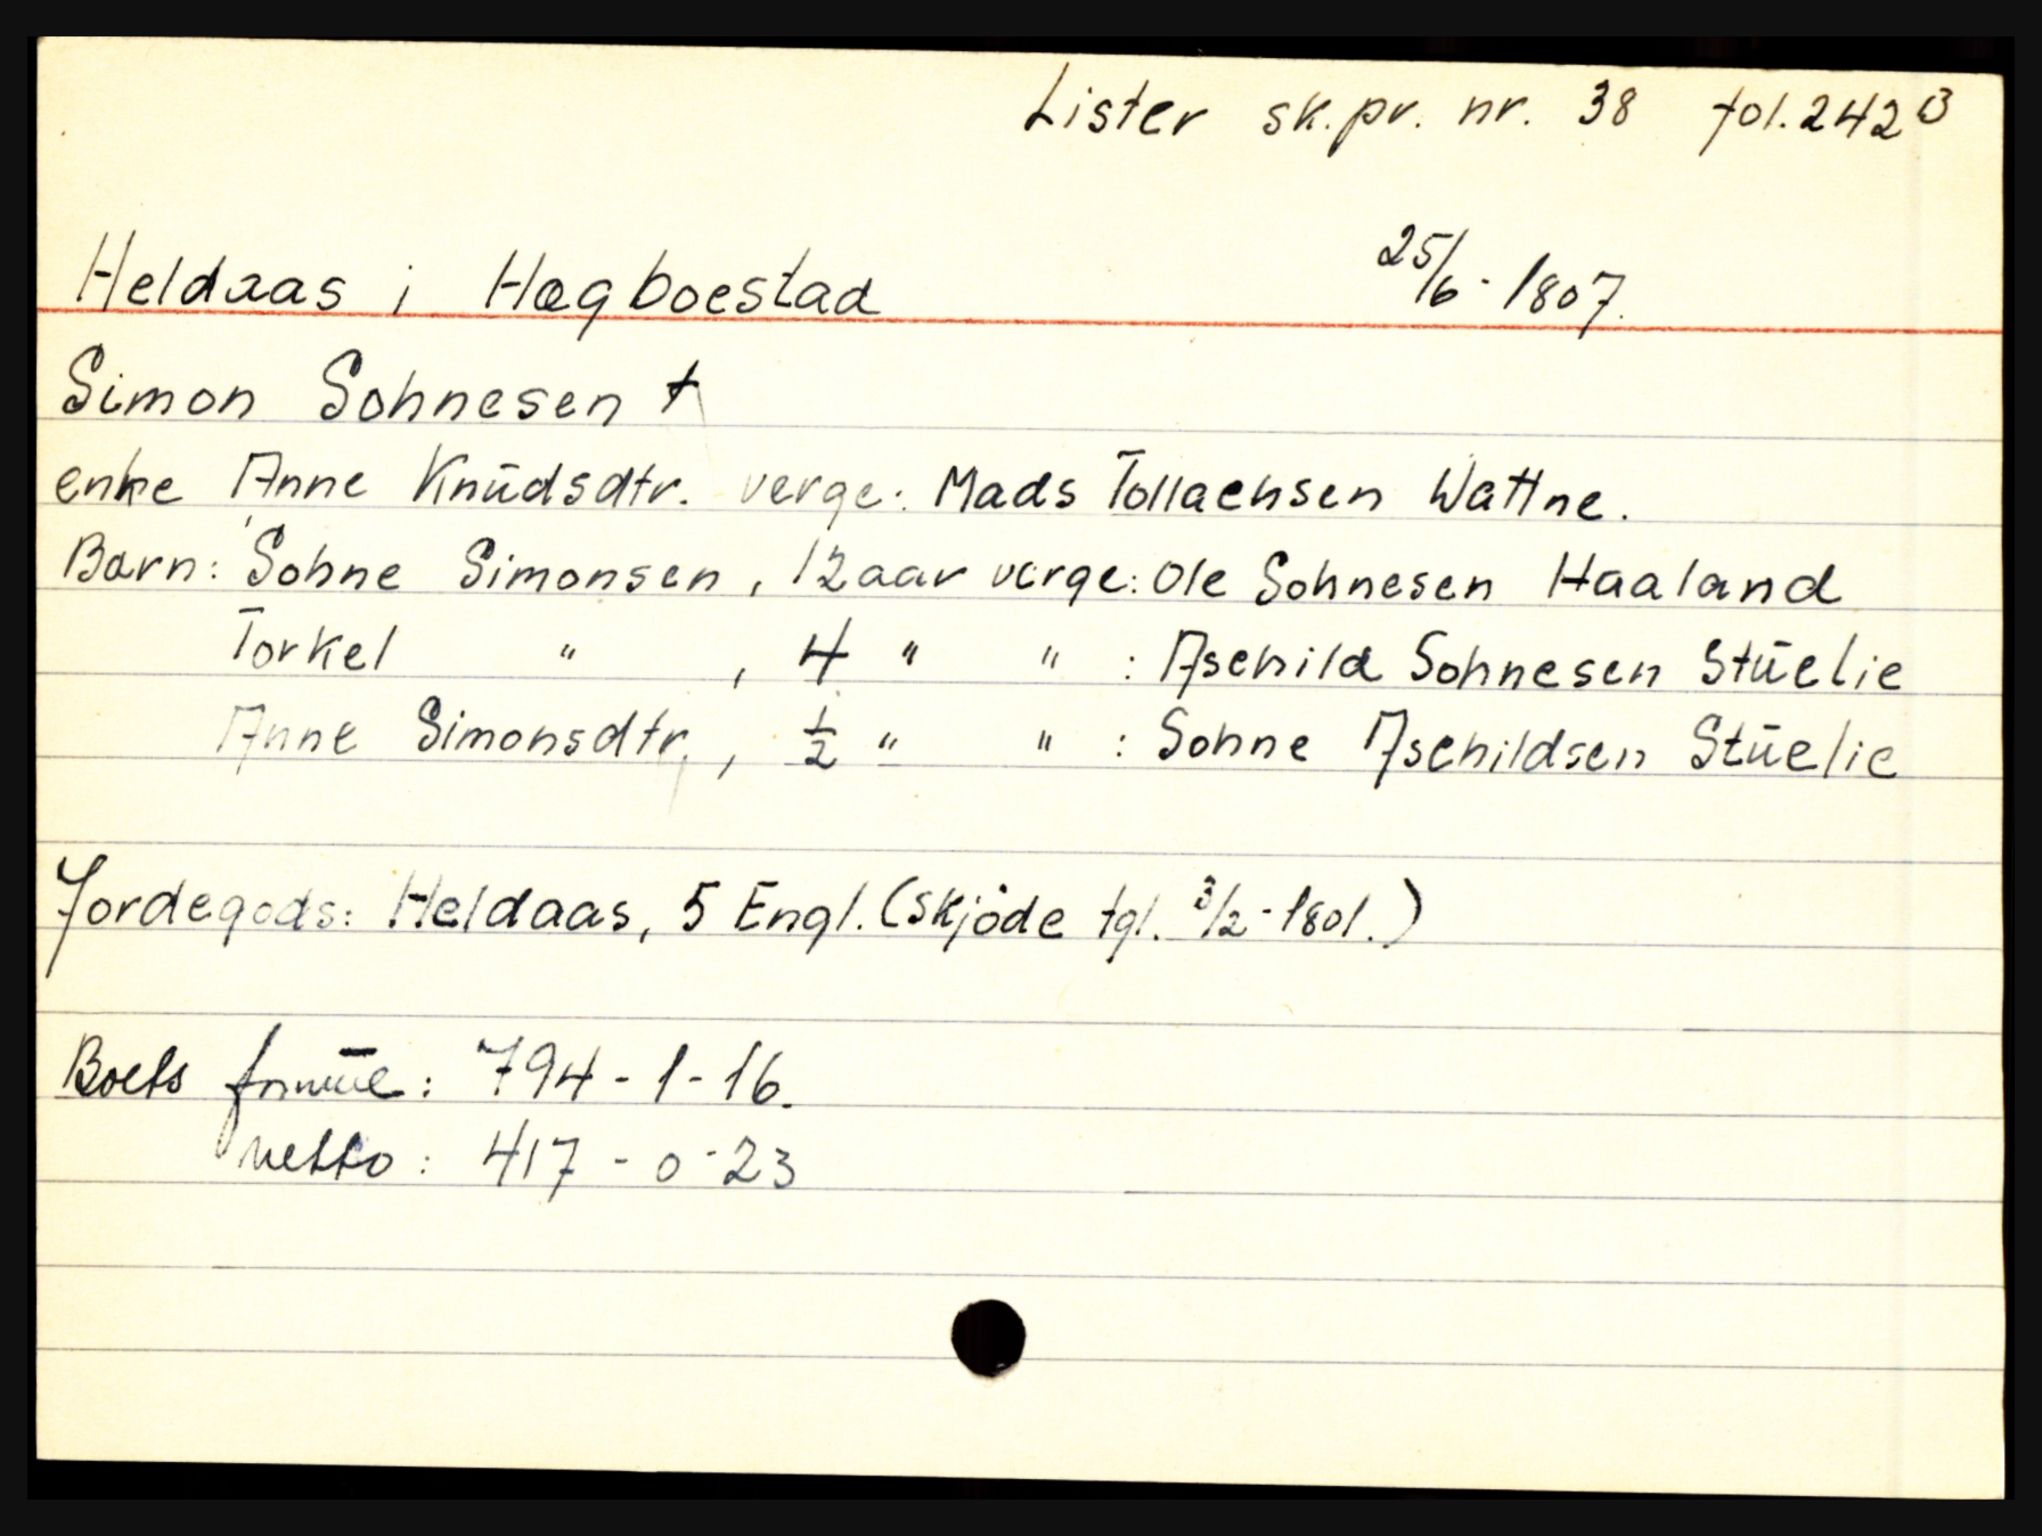 Lister sk.pr. nr. 38 fol. 242 B
Heldaas i Hægboestad 25/6-1807.
Simon Sohnesen †
enke Anne Knŭdsdtr. verge: Mads Tollachsen Wattne.
Barn: Sohne Simonsen, 12 aar verge: Ole Sohnesen Haaland
Torkel " , 4 " " : Aschild Sohnesen Stŭelie
Anne Simonsdtr., ½ " " : Sohne Aschildsen Stŭelie
Jordegods: Heldaas, 5 Engl. (skjöde tgl. 3/2-1801.)
Boets formŭe: 794-1-16.
netto: 417-0-23